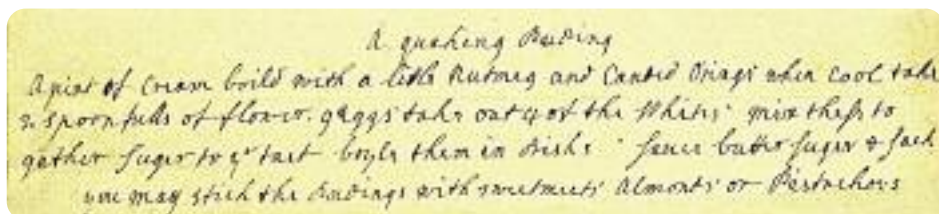 A quaking Puding
A pint of Cream boild with a litle Nutmeg and Candid Oringe when cool take
2 spoonfulls of flower. 9 eggs take out 4 of the Whites mix thes to
gather suger to yr tast boyle them in dishs sauce butter suger & sack
you may stick the Pudings with sweetmeets Almonts or Pistachovs